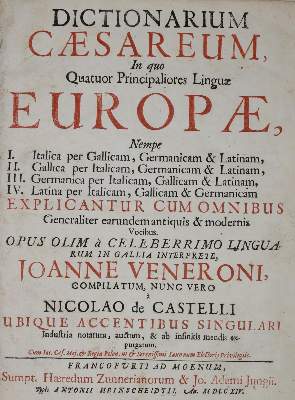 DICTIONARIUM
CÆSAREUM,
In quo
Quatuor Principaliores Linguæ
EUROPÆ,
Nempe
I. Italica per Gallicam, Germanicam & Latinam,
II. Gallica per Italicam, Germanicam & Latinam,
III. Germanica per Italicam, Gallicam & Latinam,
IV. Latina per Italicam, Gallicam & Germanicam
EXPLICANTUR CUM OMNIBUS
Generaliter earundem antiquis & modernis
Vocibus.
OPUS OLIM à CELEBERRIMO LINGUA-
RUM IN GALLIA INTERPRETE,
JOANNE VENERONI,
COMPILATUM, NUNC VERO
à
NICOLAO de CASTELLI
UBIQUE ACCENTIBUS SINGULARI
Industria notatum, auctum, & ab infinitis mendis ex-
purgatum.
FRANCOFURTI AD MOENUM,
Sumpt. Hæredum Zunnerianorum & Jo. Adami Jungii.
Typis ANTONII HEINSCHEIDTII.